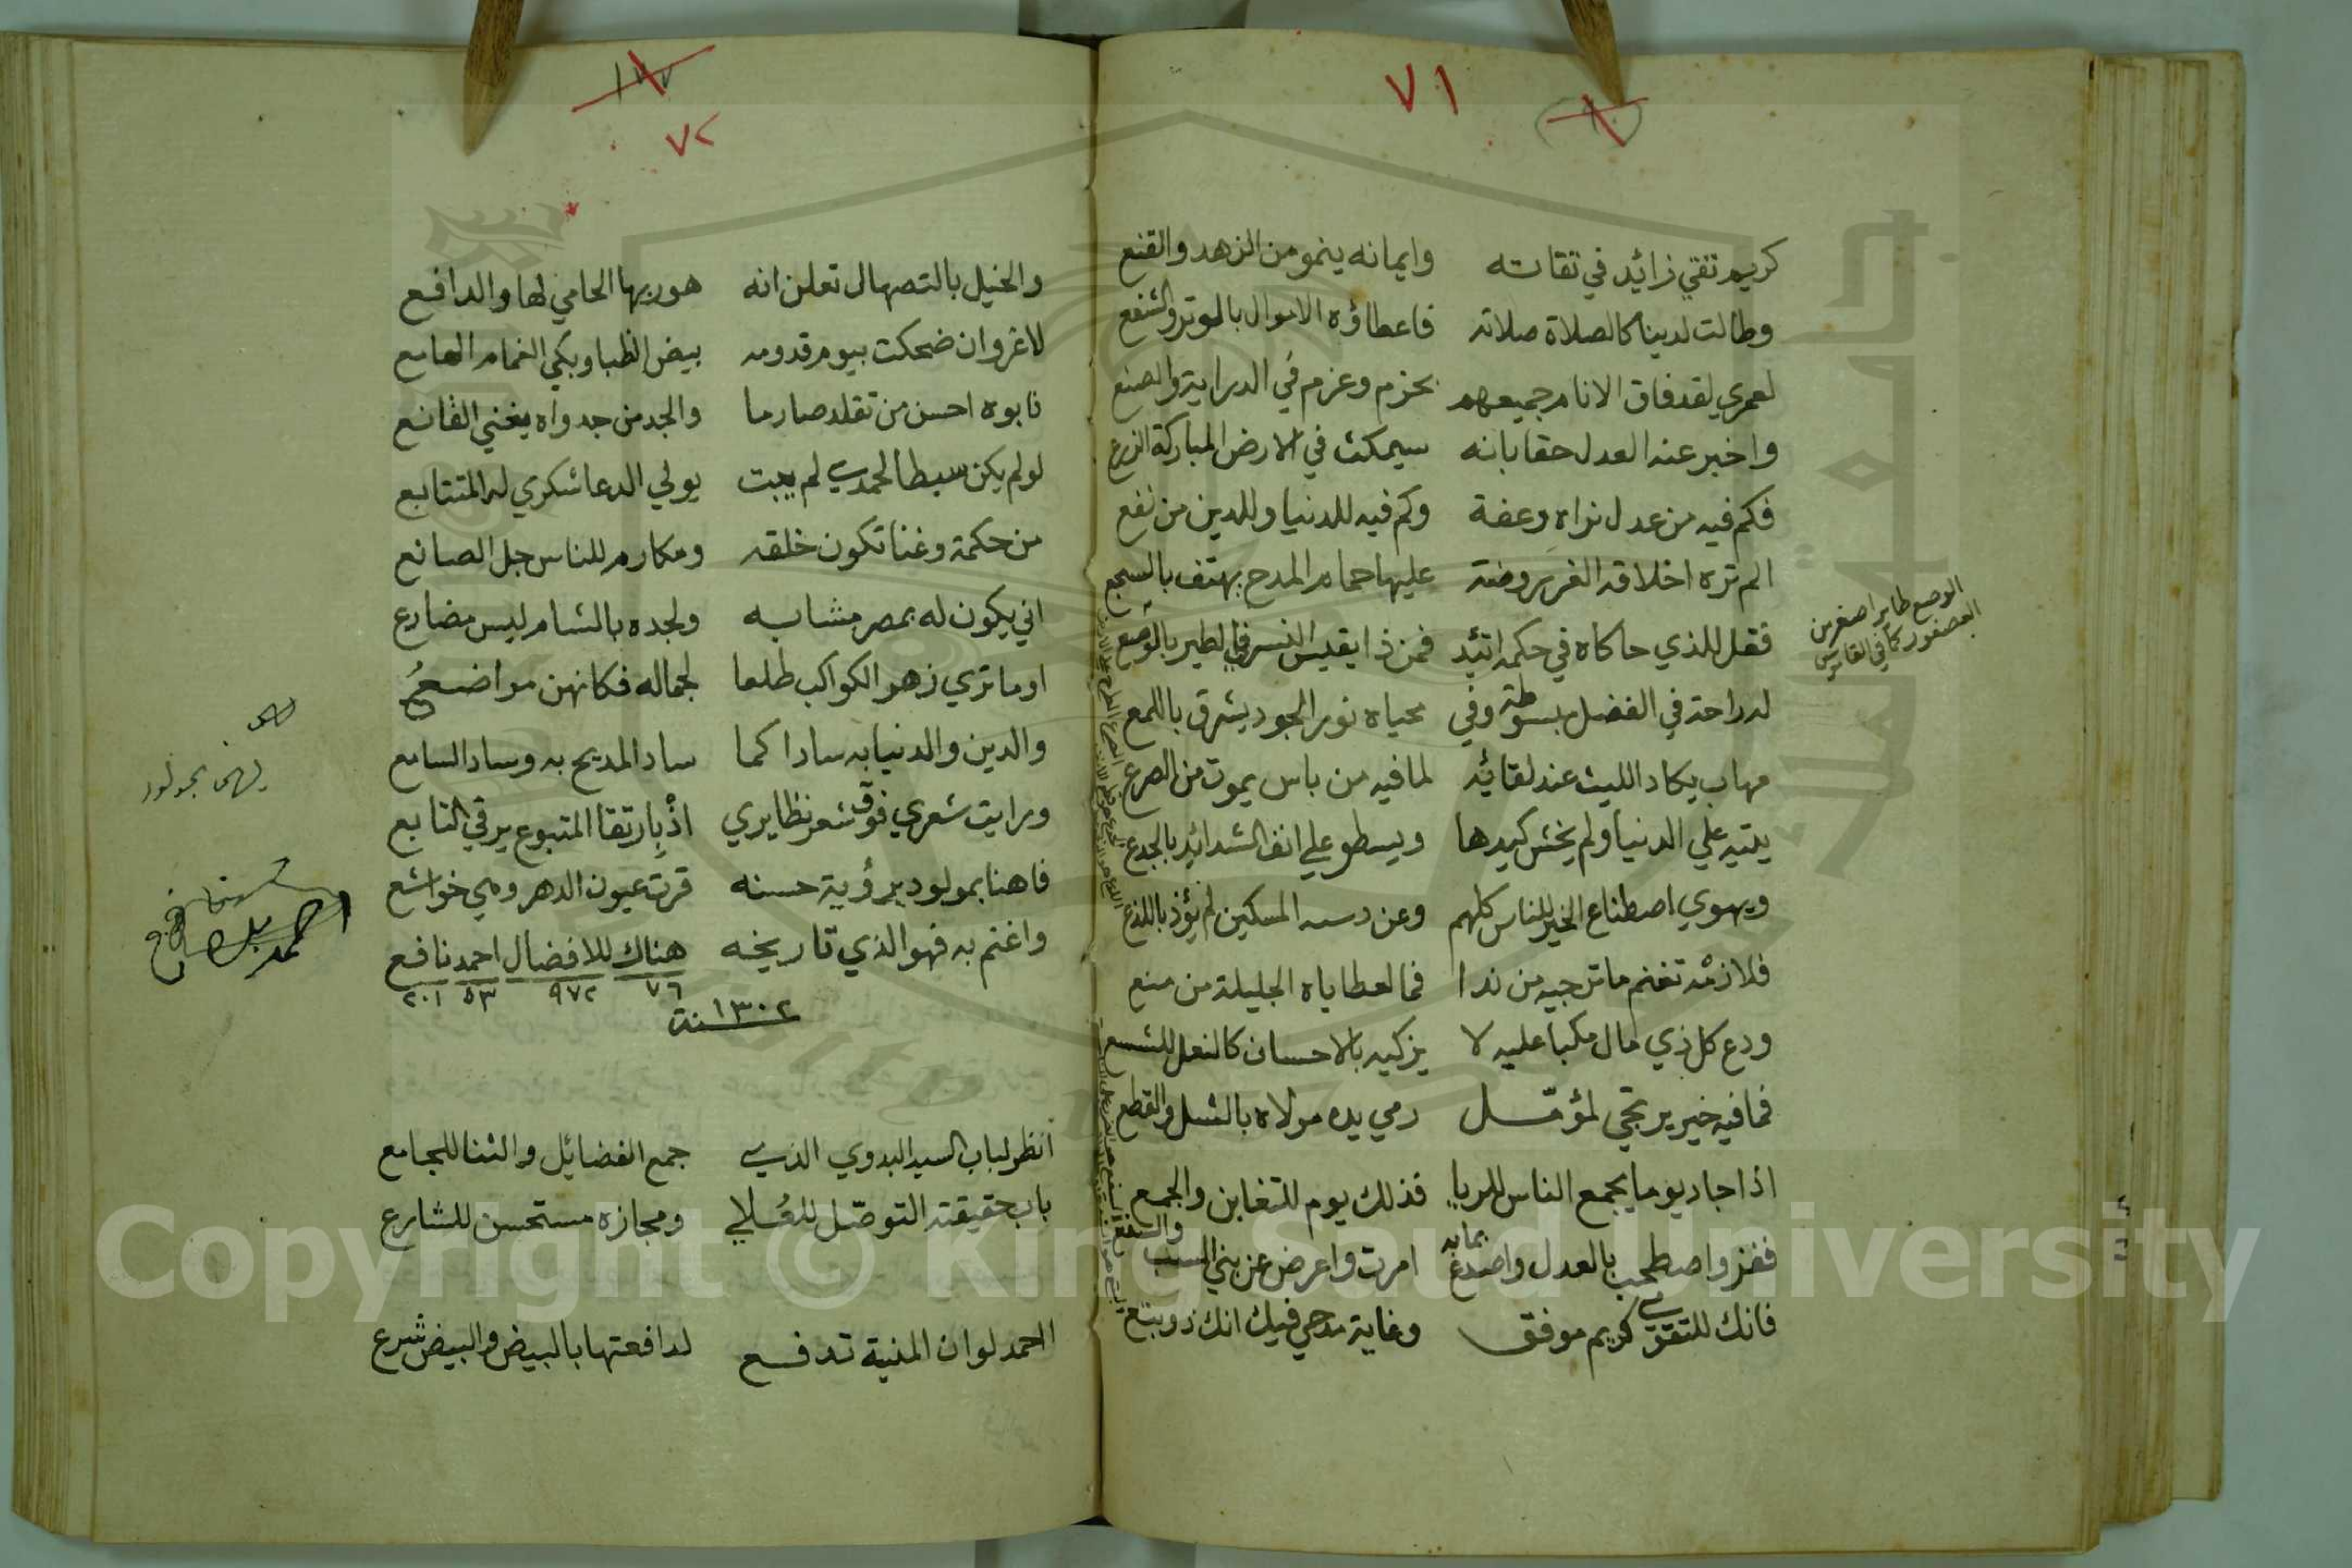 ٧١
كريم تقي زائد في تقاته وايمانه ينمو من الزهد والقنع
وطالت لدينا كالصلاة صلاته فاعطاؤه الاموال بالوتر والشفع
لعمري لقد فاق الانام جميعهم بحزم وعزم في الدراية والصنع
واخبر عنه العدل حقا بانه سيمكث في الارض المباركة الزرع
فكم فيه من عدل نراه وعفة وكم فيه للدنيا وللدين من نفع
الم تره اخلاقه الغر روضة عليها حمام المدح يهتف بالسجع
فقل للذي حاكاه في حكمه اتئد فمن ذا يقيس النسر في الطير بالوصع
الوصع طاير اصغر من
العصفور كما في القاموس
له راحة في الفضل مبسوطة وفي محياه نور الجود يشرق باللمع
مهاب يكاد الليث عند لقائه لما فيه من باس يموت من الصرع
يتيه علي الدنيا ولم يخش كيدها ويسطو علي انف الشدائد بالجدع
ويهوي اصطناع الخير للناس كلهم وعن دسه المسكين لم يؤذ باللذع
فلازمه تغنم ما ترجيه من ندا فما لعطاياه الجليلة من منع
ودع كل ذي مال مكبا عليه لا يزكيه بالاحسان كالنعل للشسع
فما فيه خير يرتجي لمؤمل رمي يده مولاه بالشل والقطع
اذا جاد يوما يجمع الناس للريا فذلك يوم للتغابن والجمع
ففز واصطحب بالعدل واصدع بما به امرت واعرض عن بني السب والسفع
فانك للتقوي كريم موفق وغاية مدحي فيك انك ذو بتع
٧٢
والخيل بالتصهال تعلن انه هو ربها الحامي لها والدافع
لا غرو ان ضحكت بيوم قدومه بيض الظبا وبكي الغمام الهامع
نابوه احسن من تقلد صارما والجد من جدواه يغني القانع
لو لم يكن سبطا لحمدي لم يبت يولي الدعا شكري له المتتابع
من حكمة وغنا تكون خلقه ومكارم للناس جل الصانع
اني يكون له بمصر مشابه ولجده بالشام ليس مضارع
اوما تري زهر الكواكب طلعا لجماله فكانهن مواضع
والدين والدنيا به سادا كما ساد المديح به وساد السامع
ورايت شعري فوق شعر نظايري اذ بارتقا المتبوع يرقي التابع
فاهنا بمولود برؤية حسنه قرت عيون الدهر وهي خواشع
واغنم به فهو الذي تاريخه هناك للافضال احمد نافع
٧٦ ٩٧٢ ٥٣ ٢٠١
سنة ١٣٠٢
انظر لباب السيد البدوي الذي جمع الفضائل والثنا للجامع
باب حقيقته التوصل للعلا ومجازه مستحسن للشارع
احمد لو ان المنية تدفع لدافعتها بالبيض والبيض شرع
Copyright © King Saud University